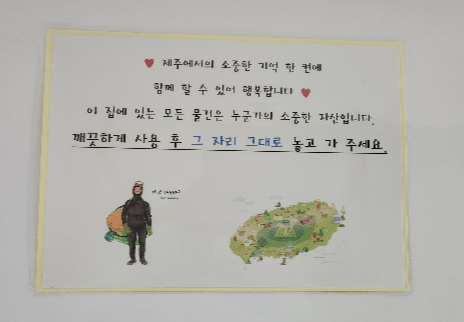 ♥ 제주에서의 소중한 기억 한 켠에
함께 할 수 있어 행복합니다 ♥
이 집에 있는 모든 물건은 누군가의 소중한 자산입니다.
깨끗하게 사용 후 그 자리 그대로 놓고 가 주세요.